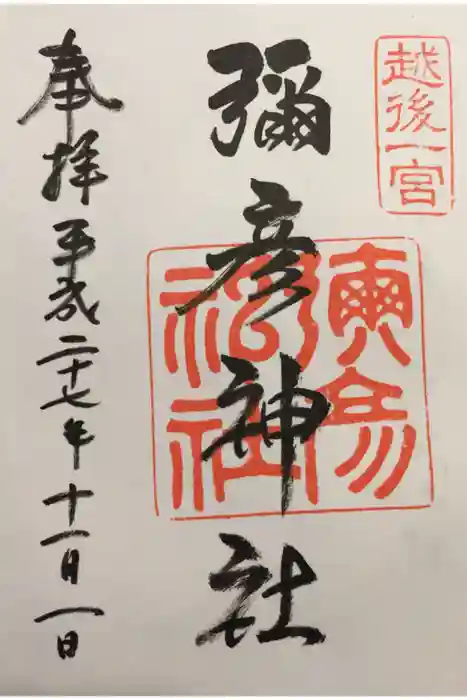 越後一宮
彌彦神社
奉拝 平成二十七年 十一月一日